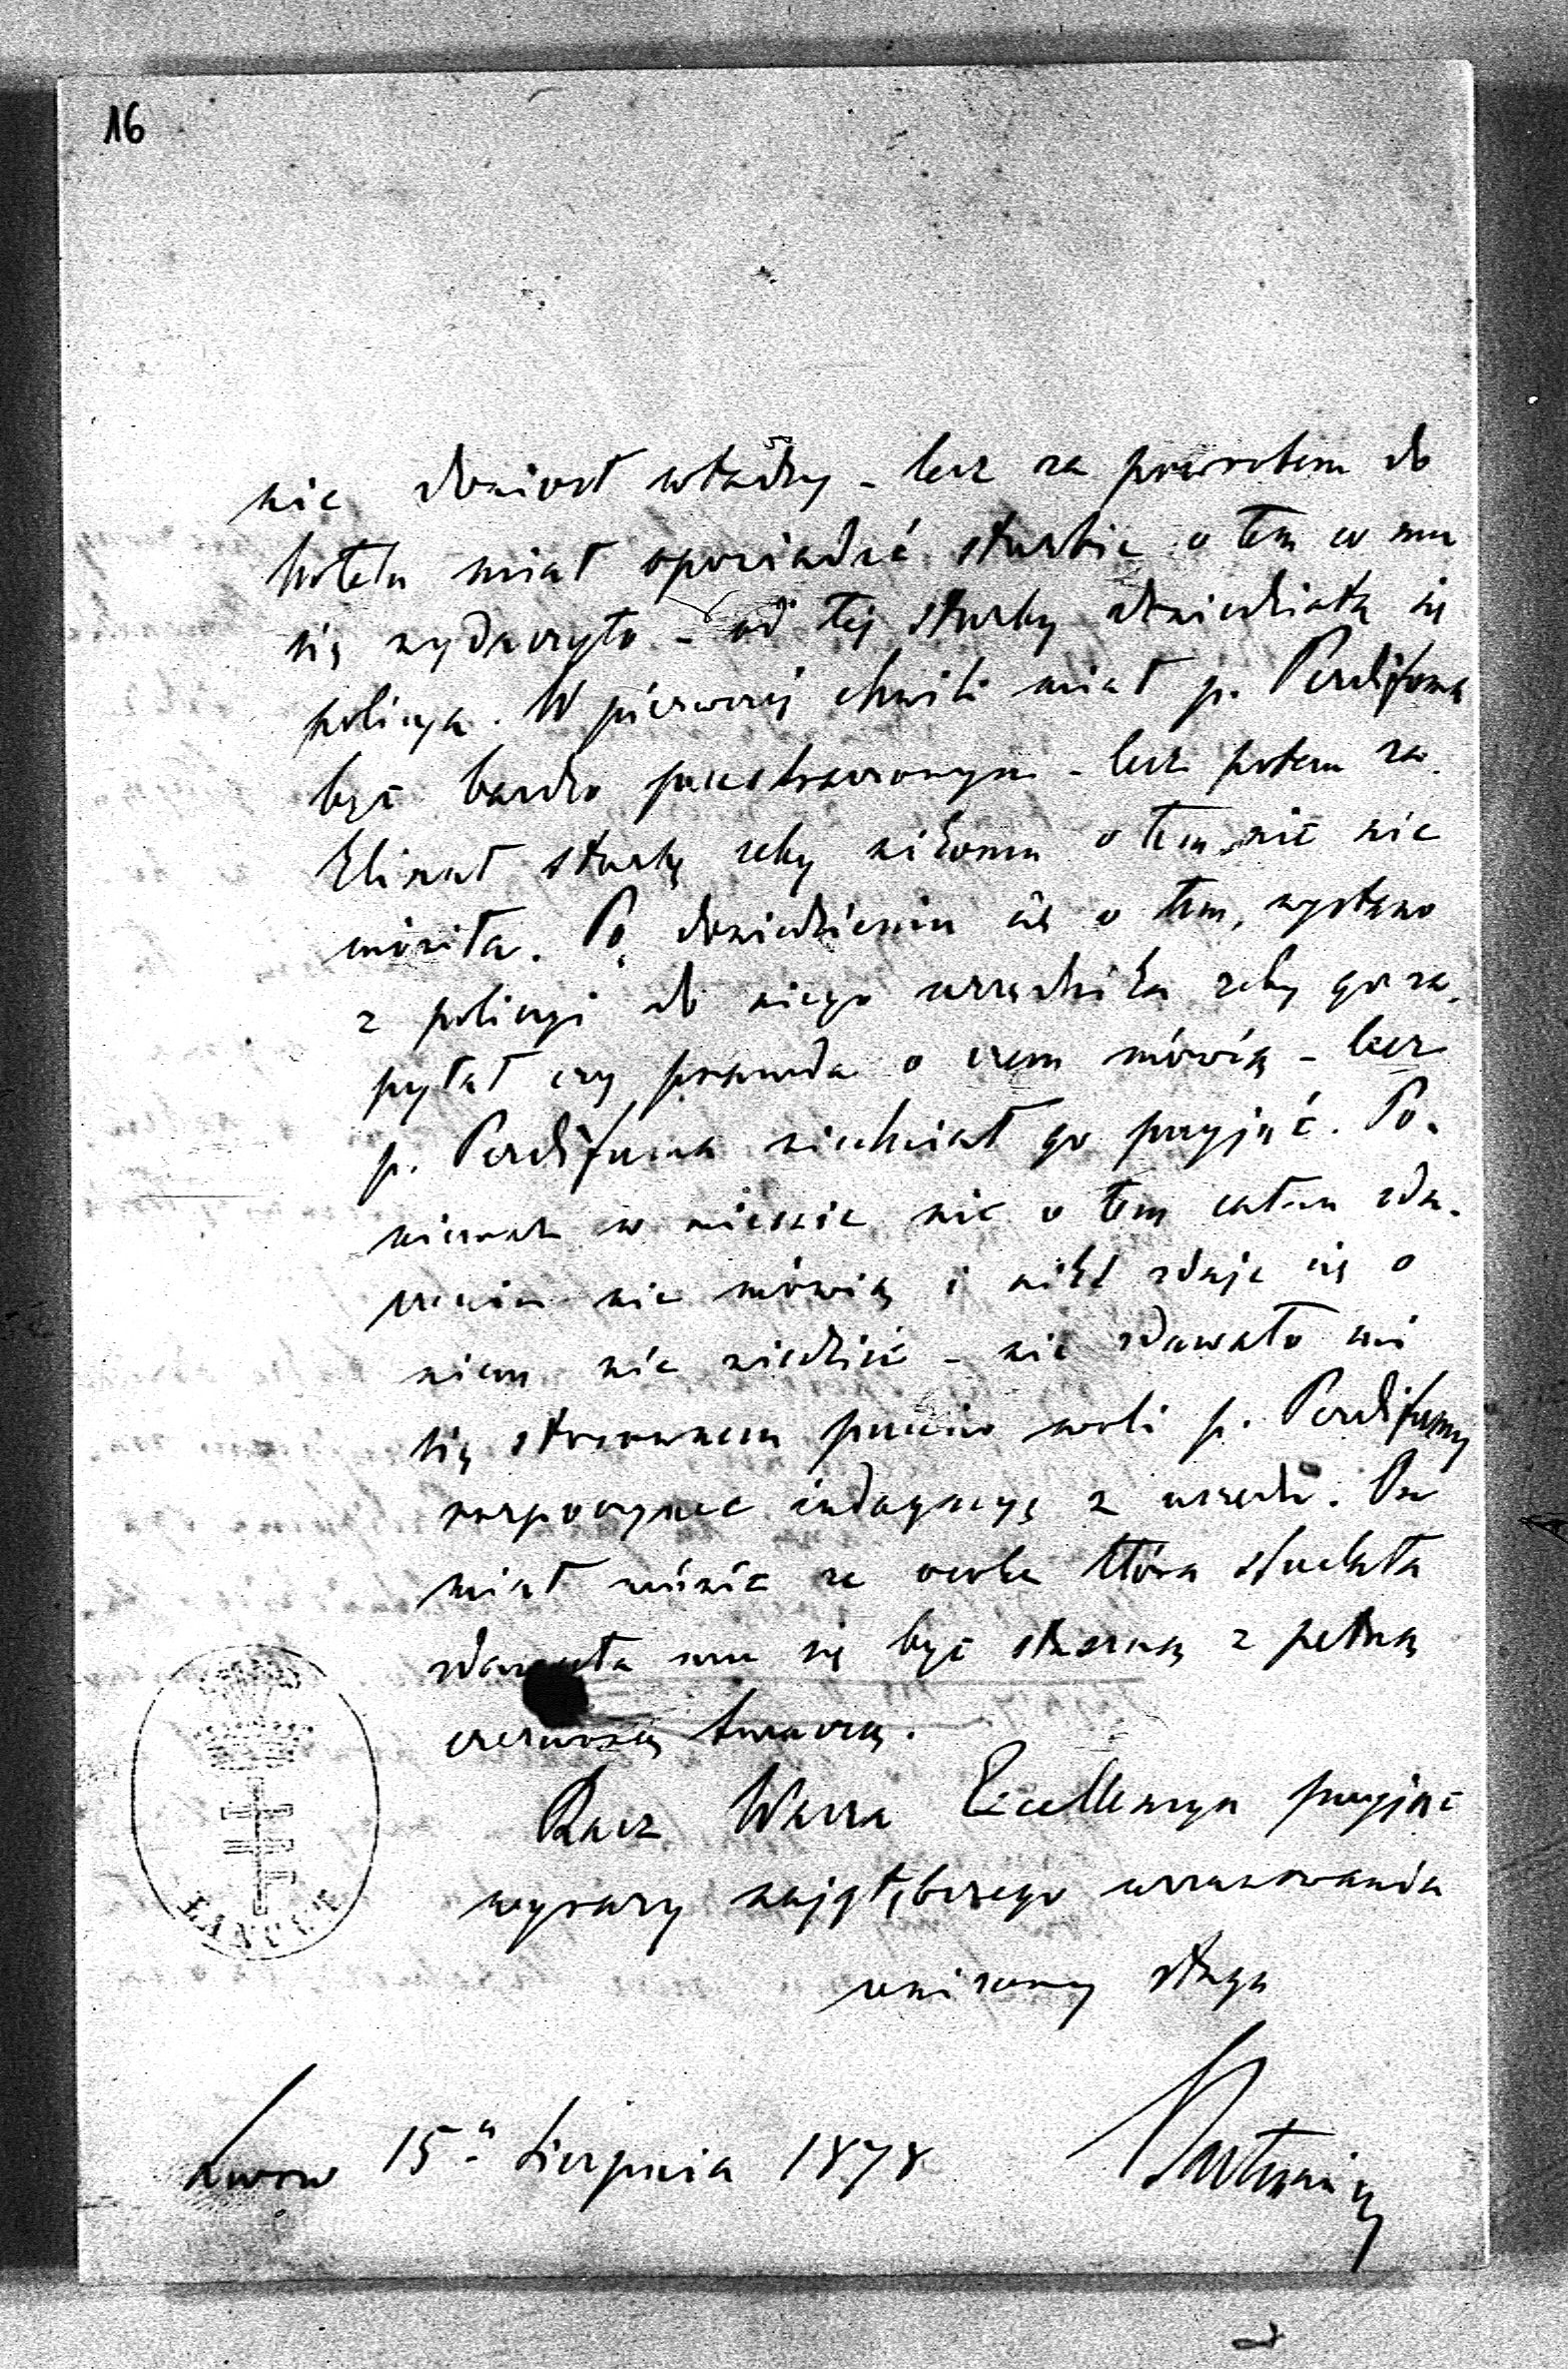 16
nie doniosł władzy - lecz za powrotem do
hotelu miał opowiadać służbie o tem co mu
się wydarzyło - od tej służby dowiedziała się
policya. W pierwszej chwili miał p. Perdifuma
być bardzo przestraszonym - lecz potem za-
klinał służbę żeby nikomu o tem nic nie
mówiła. Po dowiedzieniu się o tem, wysłano
z policyi do niego urzędnika żeby go za-
pytał czy prawda o czem mówią - lecz
p. Perdifuma niechciał go przyjąć. Po-
nieważ w mieście nic o tem całem zda-
rzeniu nie mówią i nikt zdaje się o
niem nie wiedzieć - nie zdawało mi
się stosownem przeciw woli p. Perdifumy
rozpoczynać indagacyę z urzędu. On
miał mówić że osoba która
zdawała mu się być starszą z pełną
czerwoną twarzą.
Racz Wasza Excellencya przyjąć
wyrazy najgłębszego uszanowania
uniżony sługa
Lwów 15go Sierpnia 1878
ŁAŃCUT